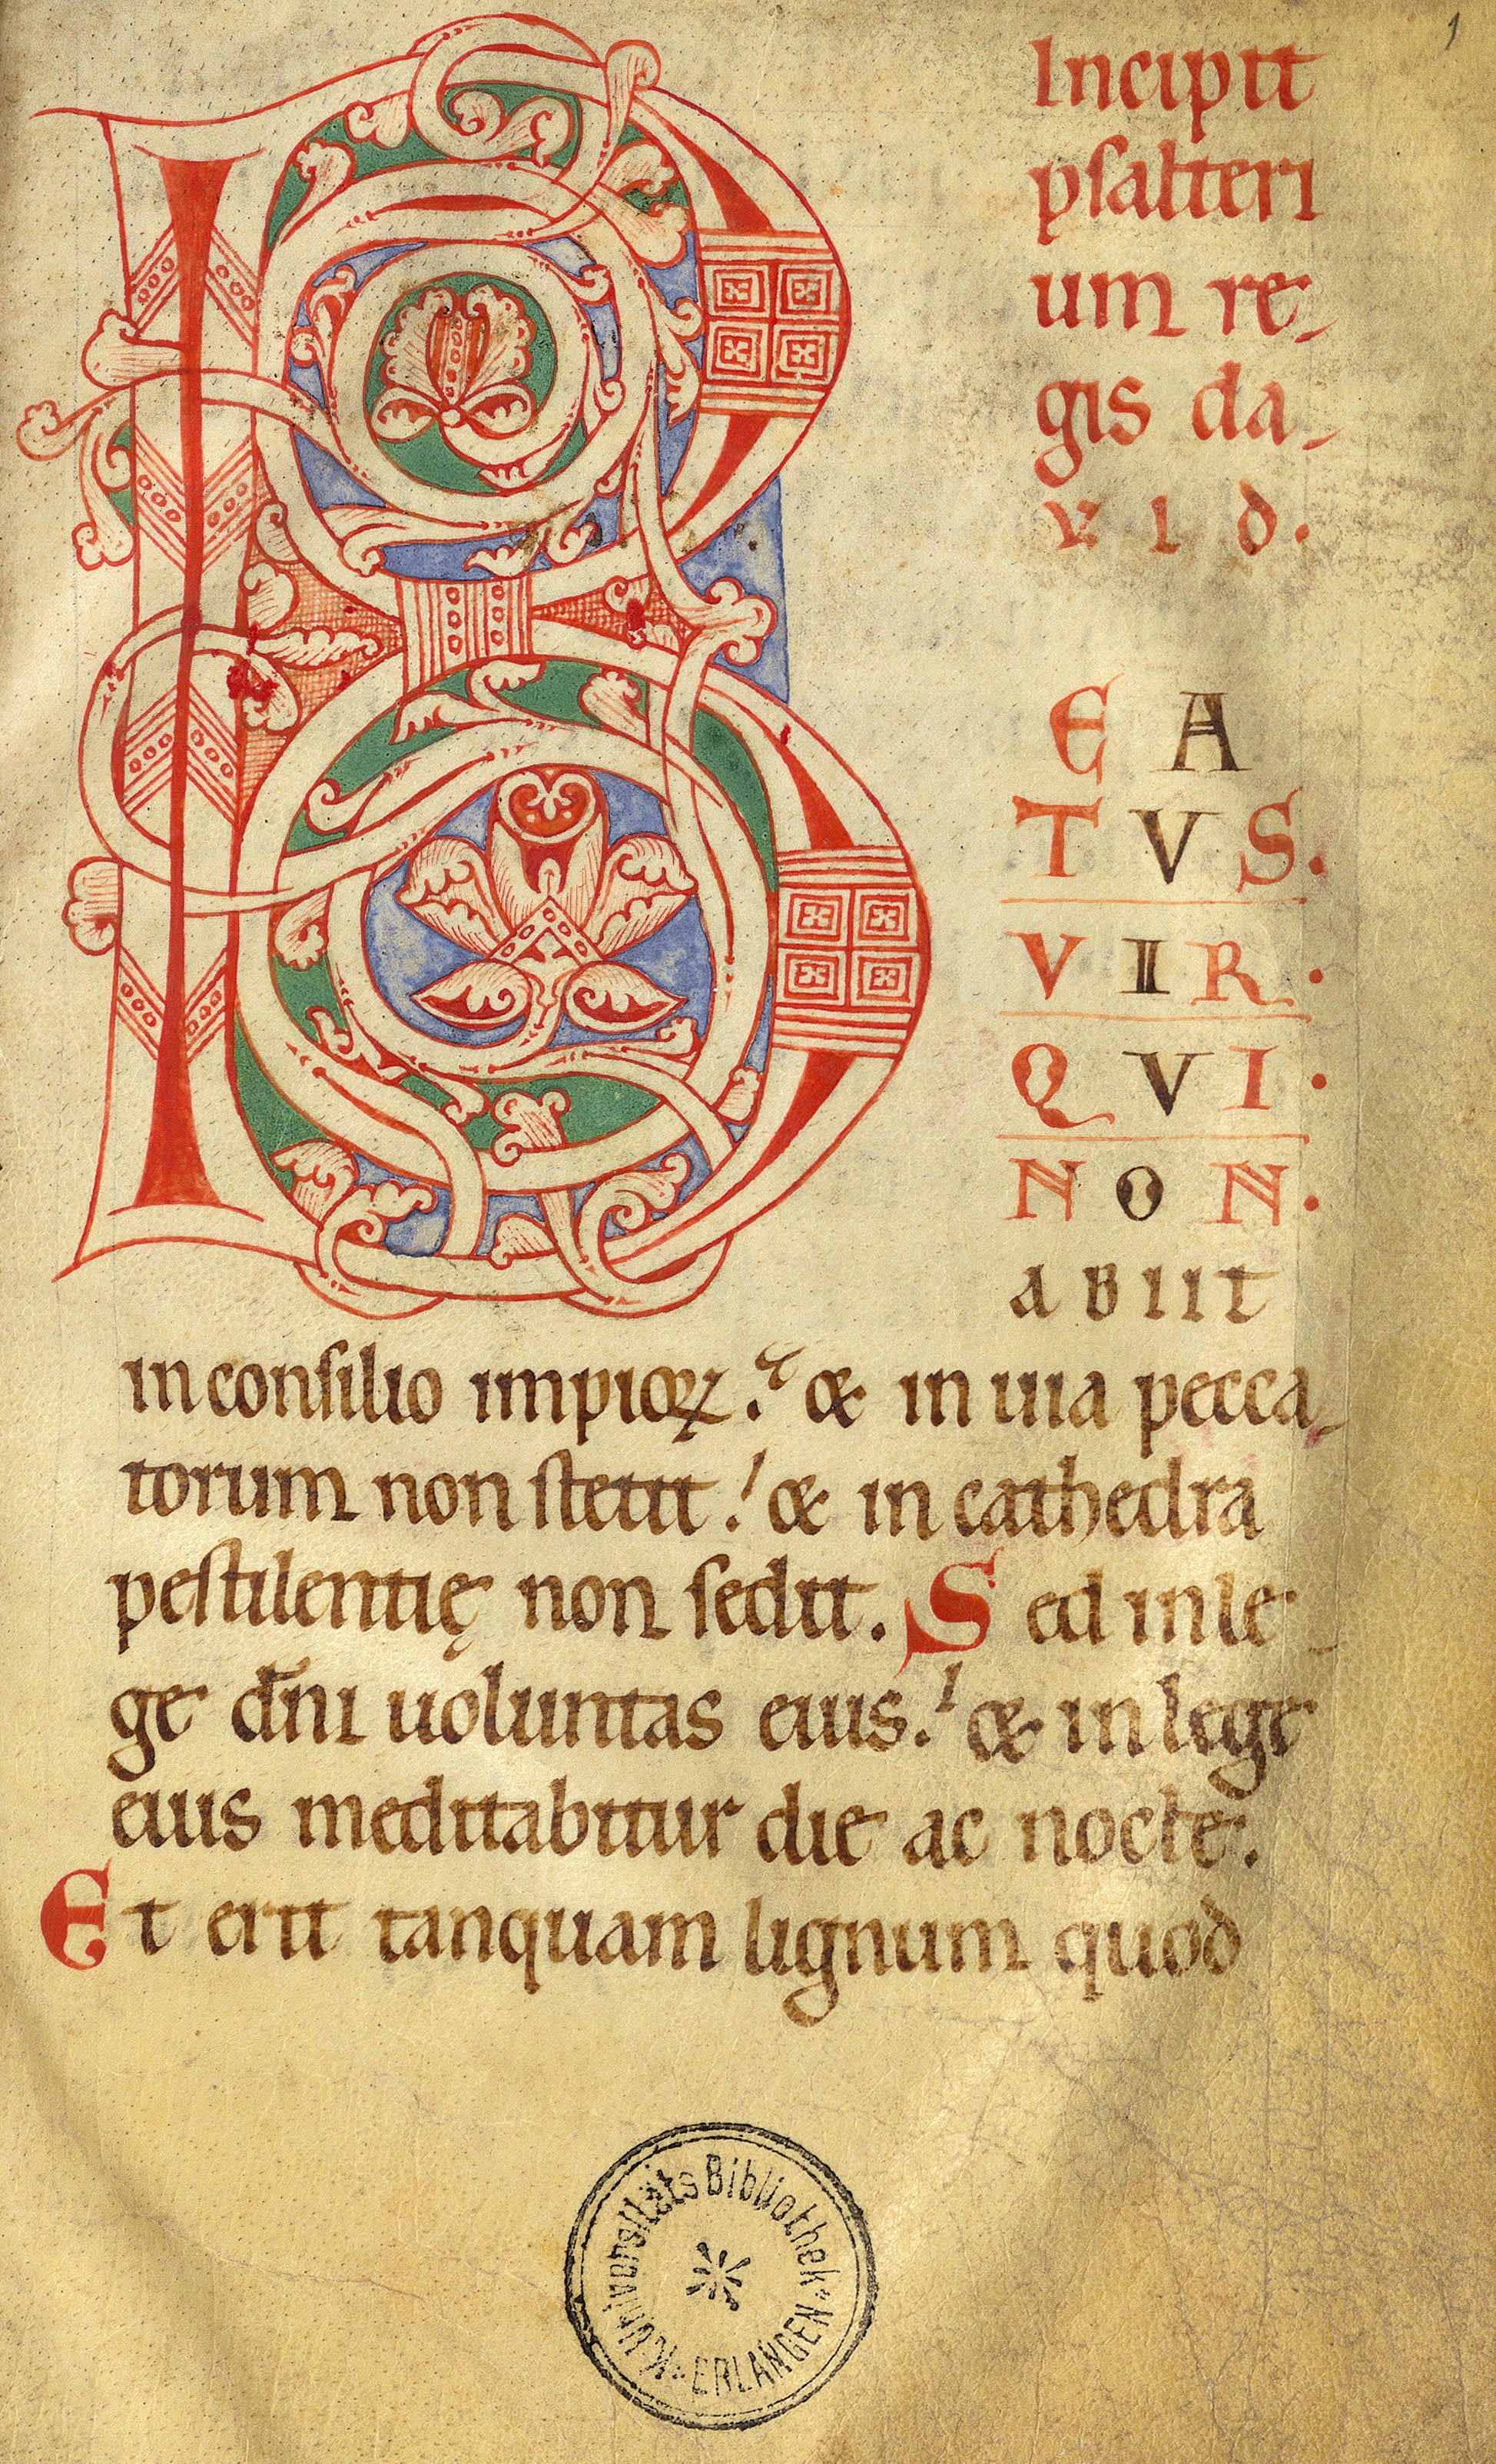 1
Incipit
pſalteri
um re-
gis da-
v i d.
B E A
T V S.
V I R.
Q V I.
N O N.
A B I I T
in conſilio impioꝝ. & in uia pecca-
torum non ſtetit. & in cathedra
peſtilentię non ſedit. Sed in le-
ge dn̄i uoluntas eius. & in lege
eius meditabitur die ac nocte.
Et erit tanquam lignum quod
K. Universitäts Bibliothek
ERLANGEN